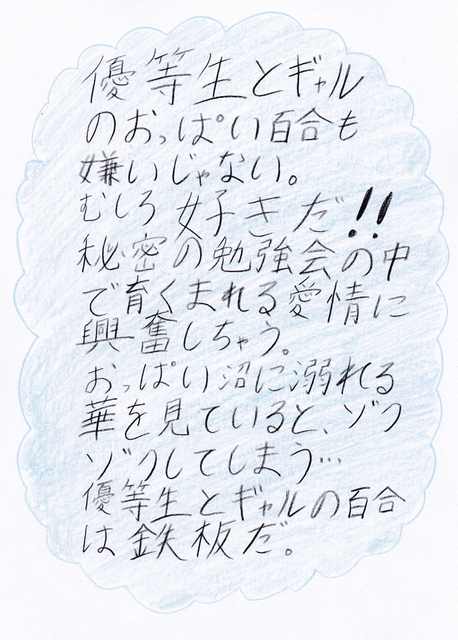 優等生とギャル
のおっぱい百合も
嫌いじゃない。
むしろ好きだ!!
秘密の勉強会の中
で育くまれる愛情に
興奮しちゃう。
おっぱい沼に溺れる
華を見ていると、ゾク
ゾクしてしまう…
優等生とギャルの百合
は鉄板だ。